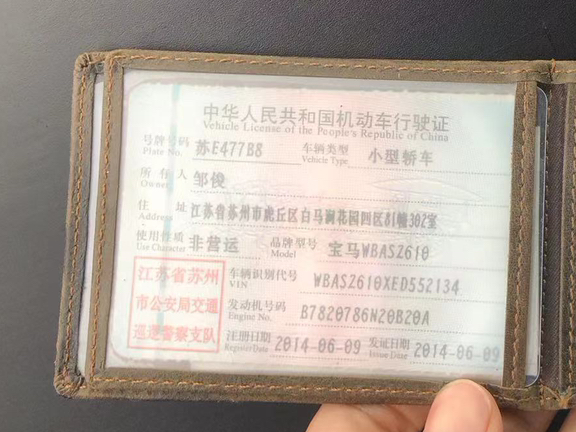 中华人民共和国机动车行驶证
Vehicle License of the People's Republic of China
号牌号码 苏E477B8 车辆类型 小型轿车
Plate No. Vehicle Type
所有人 邹俊
Owner
住址 江苏省苏州市虎丘区白马涧花园四区81幢302室
Address
使用性质 非营运 品牌型号 宝马WBAS2610
Use Character Model
江苏省苏州
市公安局交通
巡逻警察支队
车辆识别代号 WBAS2610XED552134
VIN
发动机号码 B7820786N20B20A
Engine No.
注册日期 2014-06-09 发证日期 2014-06-09
Register Date Issue Date